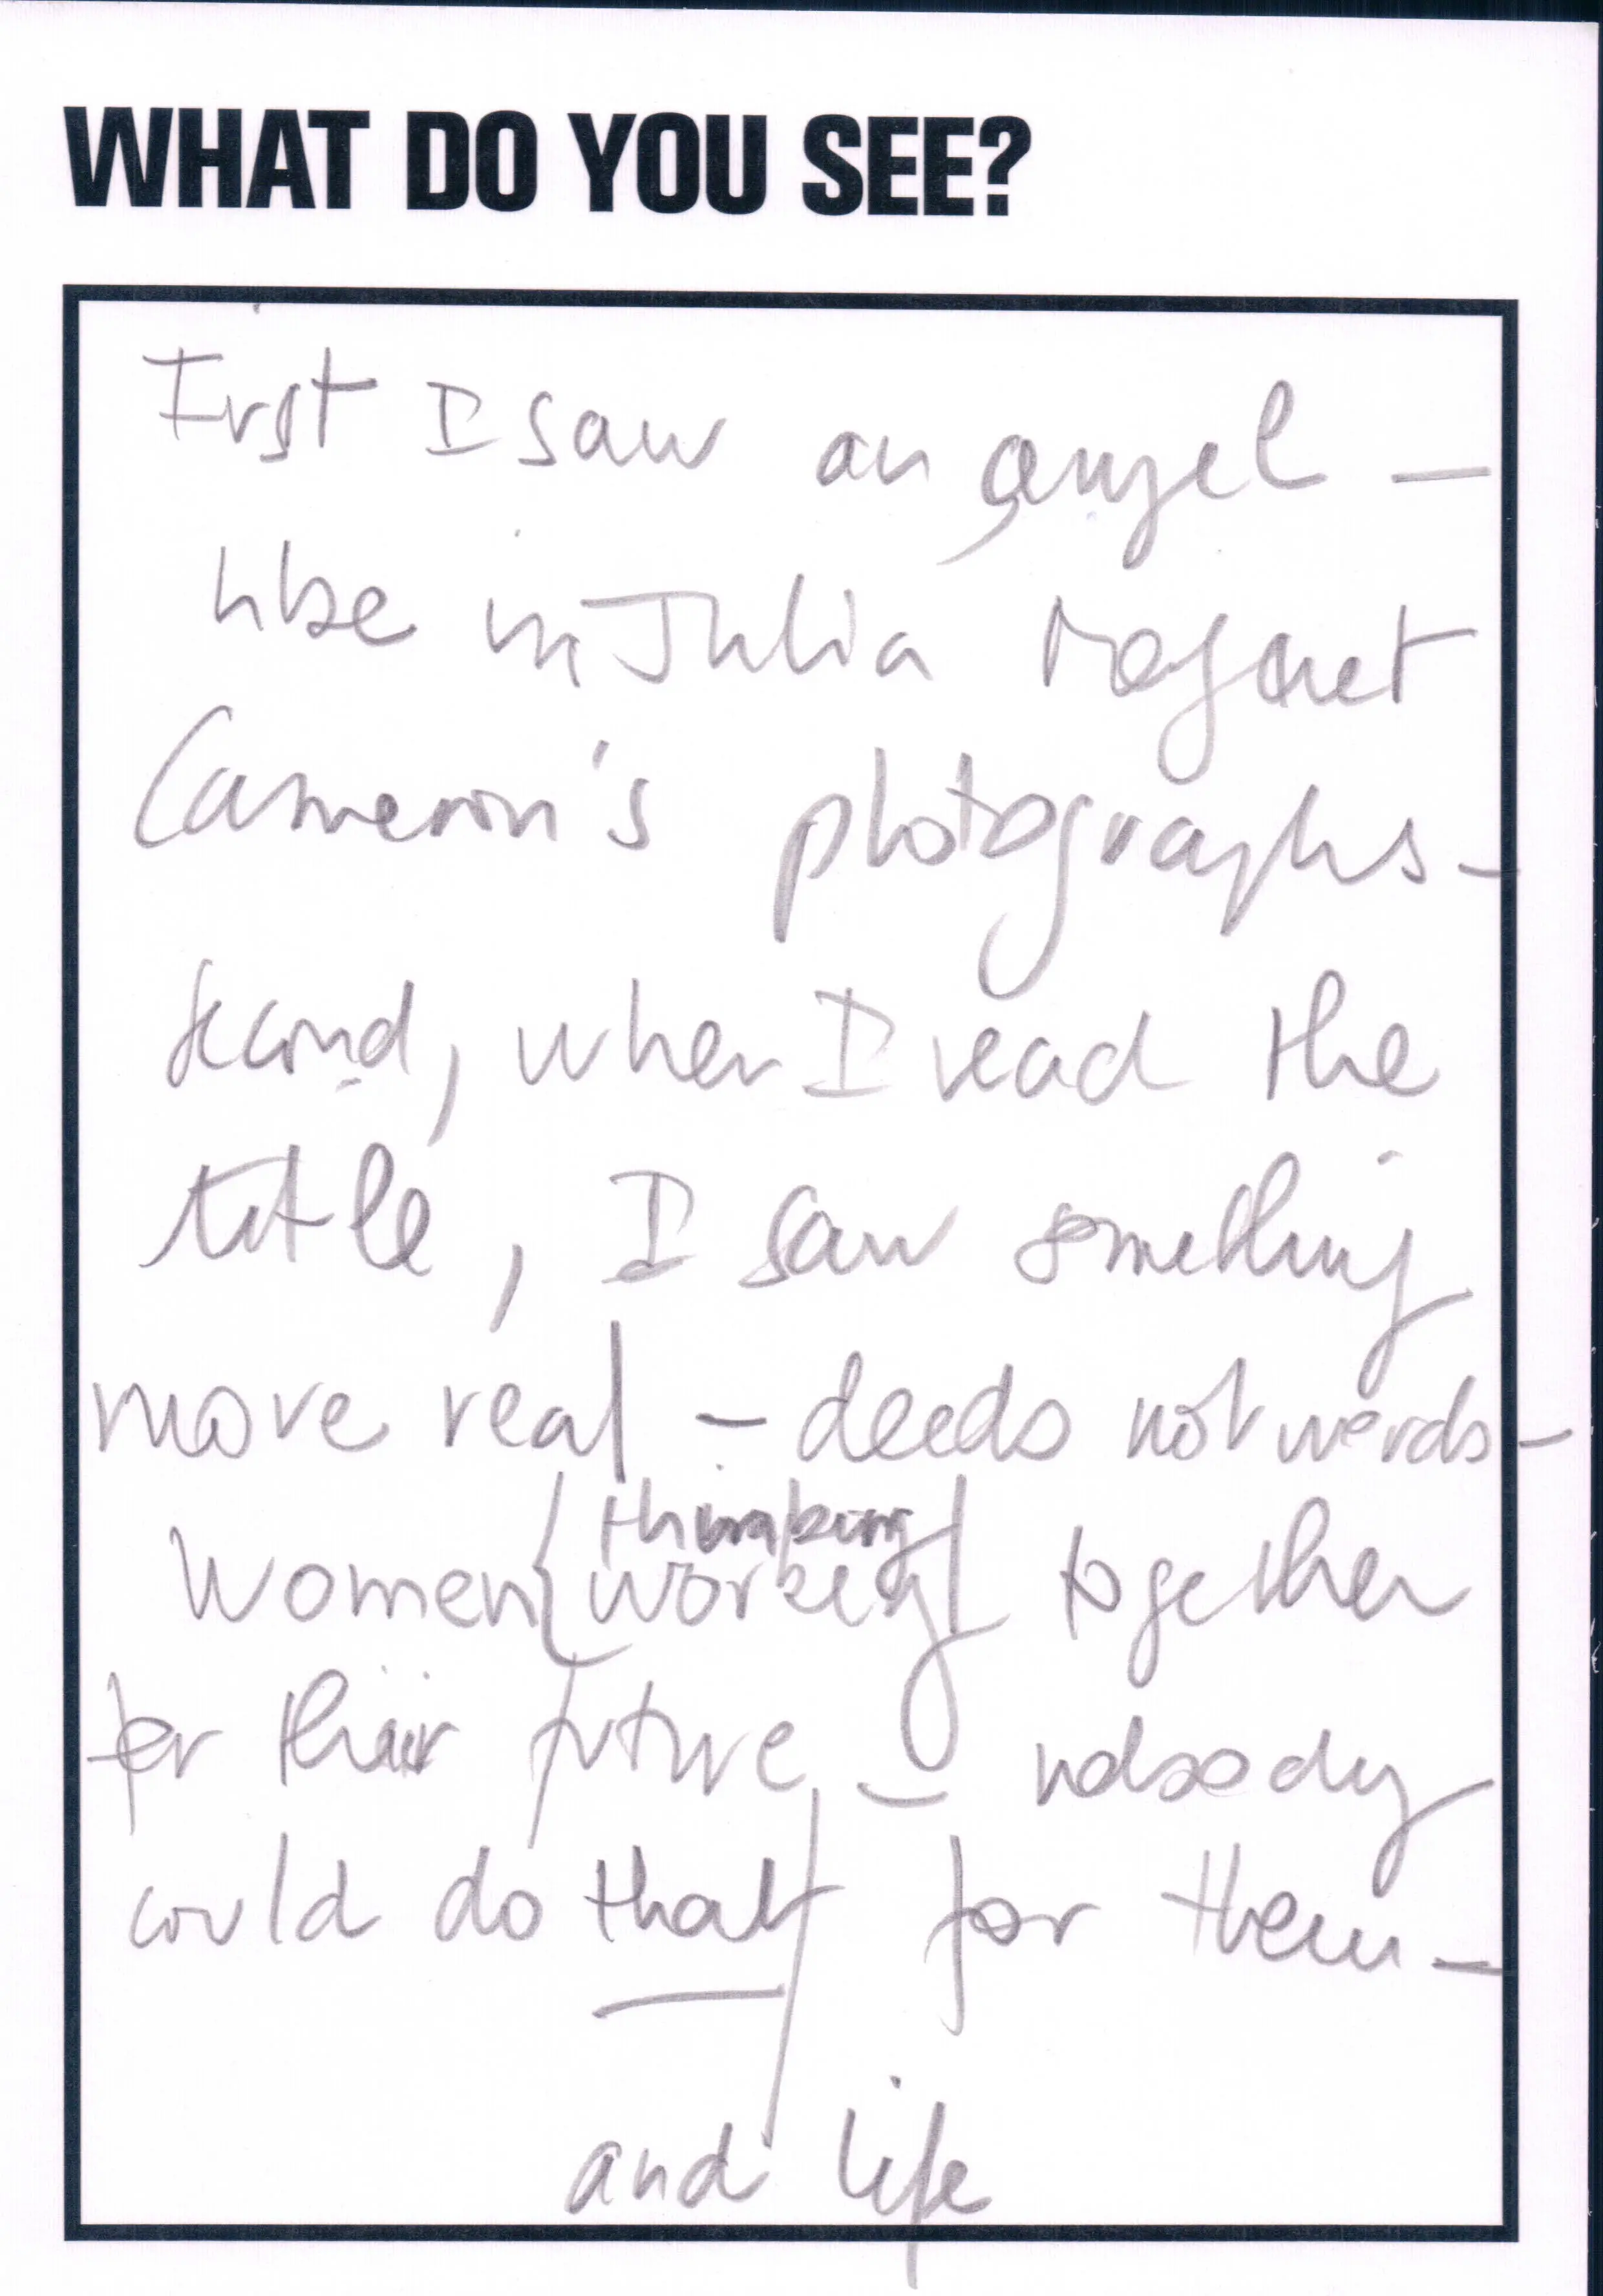 WHAT DO YOU SEE?
First I saw an angel –
like in Julia Magaret
Cameron's photographs –
second, when I read the
title, I saw something
more real – deeds not words –
thinking
women { working } together
for their future – nobody
could do that for them –
and life